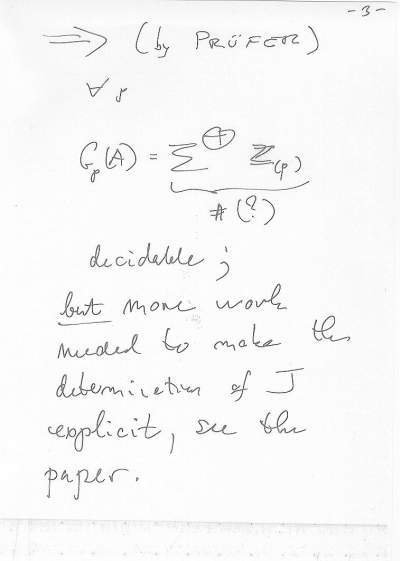 -3-
⟹ (by PRÜFER)
∀ p
G_p(A) = Σ^⊕ Z_(p)
# (?)
decidable ;
but more work
needed to make the
determination of J
explicit, see the
paper.